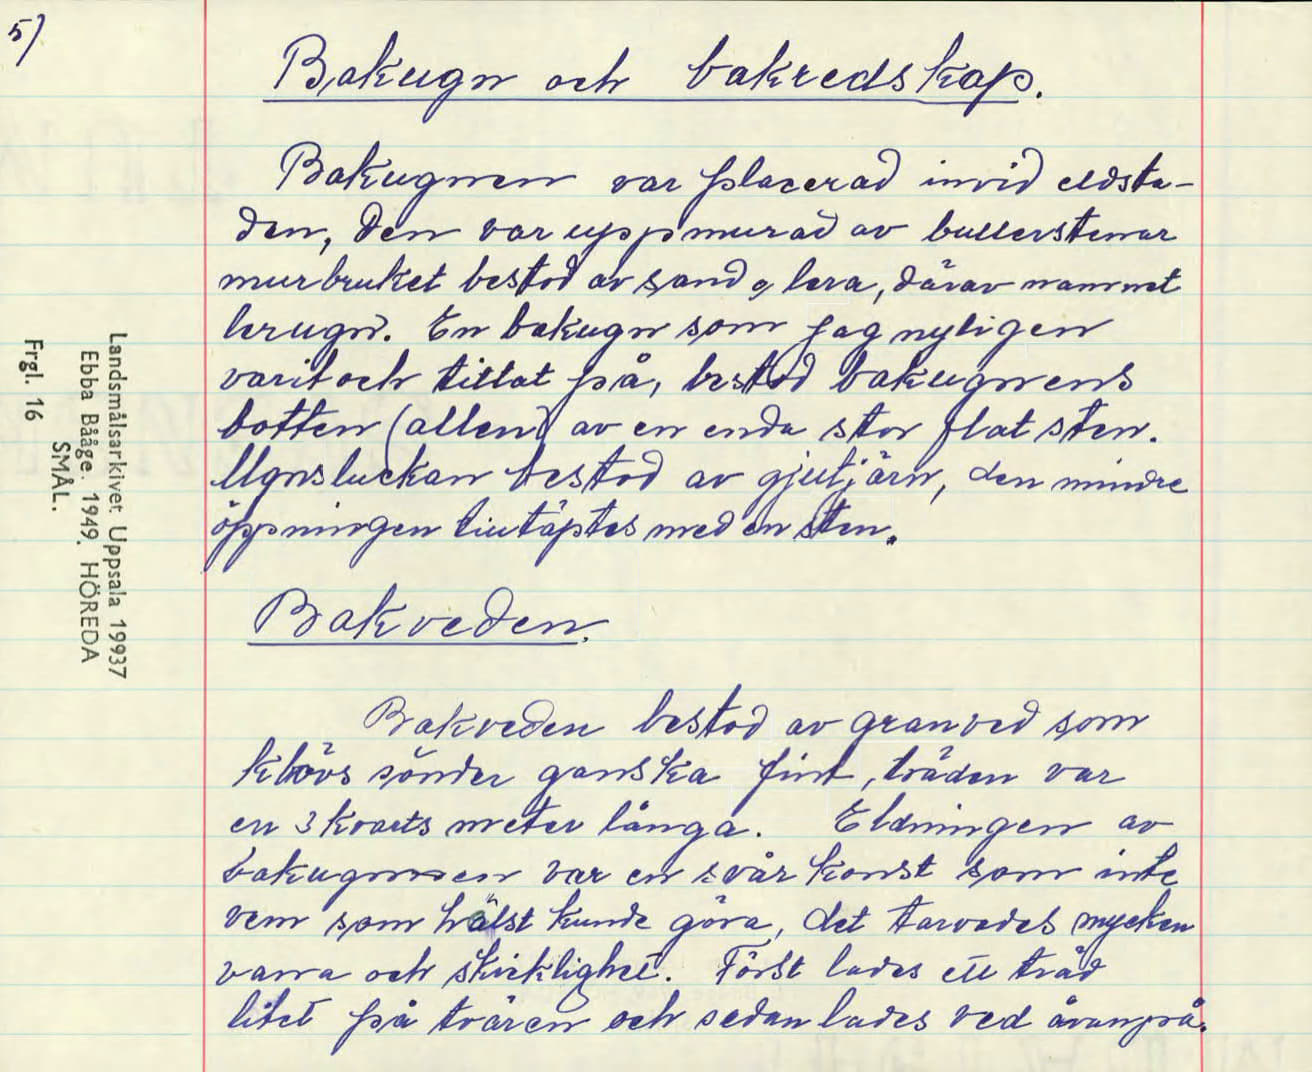 5)
Bakugn och bakredskap.
Bakugnen var placerad invid eldsta-
den, Den var uppmurad av bullerstenar
murbruket bestod av sand o, lera, därav namnet
lerugn. En bakugn som jag nyligen
varit och tittat på, bestod bakugnens
botten (allen) av en enda stor flat sten.
Ugnsluckan bestod av gjutjärn, den mindre
öppningen tilltäptes med en sten.
Bakveden.
Bakveden bestod av granved som
klövs sönder ganska fint, träden var
en 3 kvarts meter långa. Eldningen av
bakugnen var en svår konst som inte
vem som hälst kunde göra, det tarvades mycken
vana och skicklighet. Först lades ett träd
litet på tvären och sedan lades ved åvanpå.
Landsmålsarkivet Uppsala 19937
Ebba Bååge. 1949. HÖREDA
SMÅL.
Frgl. 16